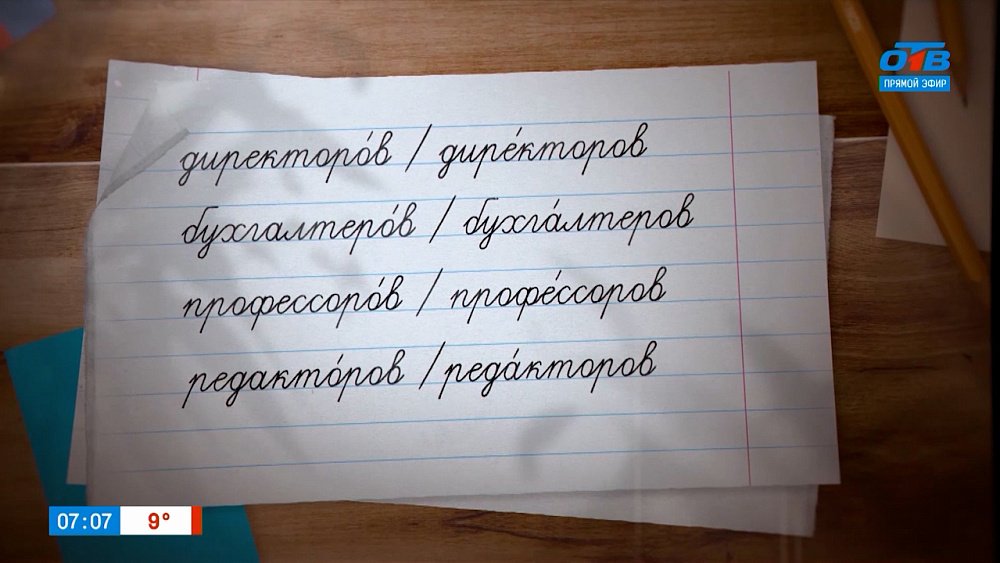 ОТВ
ПРЯМОЙ ЭФИР
директоро́в / дире́кторов
бухгалтеро́в / бухга́лтеров
профессоро́в / профе́ссоров
редакто́ров / реда́кторов
07:07 9°